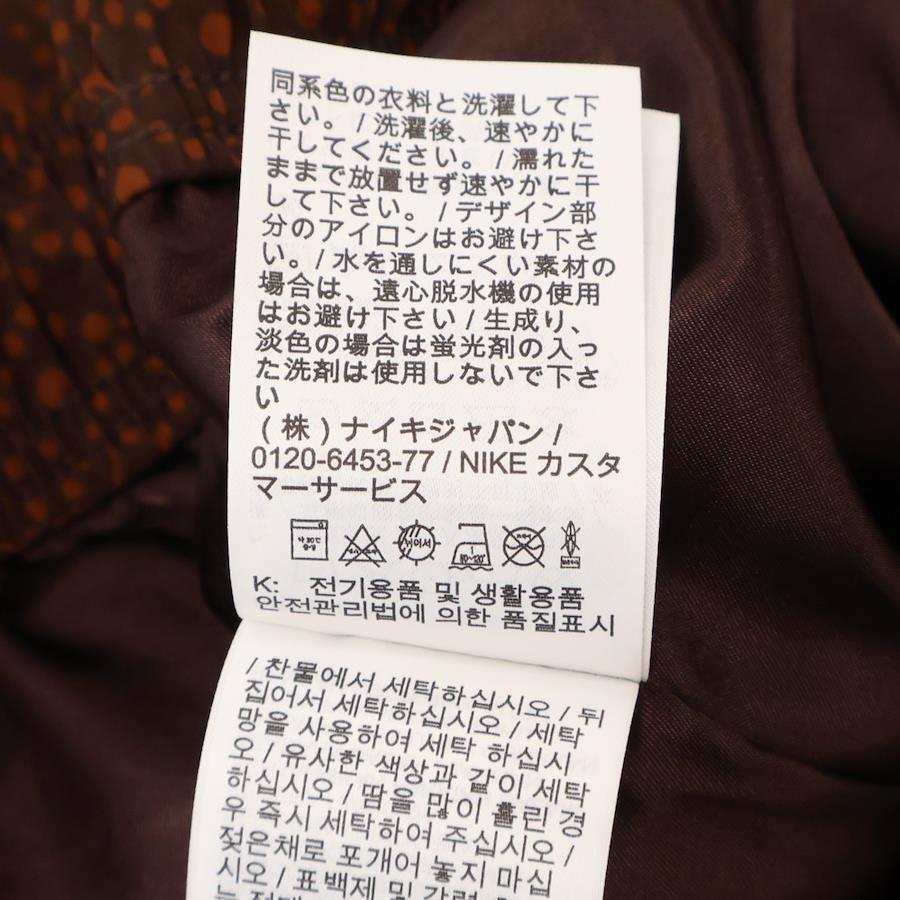 同系色の衣料と洗濯して下
さい。/洗濯後、速やかに
干してください。/濡れた
ままで放置せず速やかに干
して下さい。/デザイン部
分のアイロンはお避け下さ
い。/水を通しにくい素材の
場合は、遠心脱水機の使用
はお避け下さい/生成り、
淡色の場合は蛍光剤の入っ
た洗剤は使用しないで下さ
い
(株)ナイキジャパン/
0120-6453-77 / NIKE カスタ
マーサービス
약 30℃
중성
뉘어서
80~120℃
K: 전기용품 및 생활용품
안전관리법에 의한 품질표시
/ 찬물에서 세탁하십시오 / 뒤
집어서 세탁하십시오 / 세탁
망을 사용하여 세탁 하십시
오 / 유사한 색상과 같이 세탁
하십시오 / 땀을 많이 흘린 경
우 즉시 세탁하여 주십시오 /
젖은채로 포개어 놓지 마십
시오 / 표백제 및